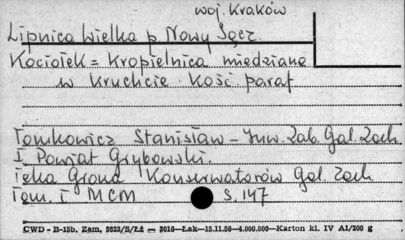 woj. Kraków
Lipnica Wielka p Nowy Sącz.
Kociołek = Kropielnica miedziana
w Kruchcie Kość paraf
Tomkowicz Stanisław - Inw. Zab. Gal. Zach
I Powiat Grybowski.
Teka Grona Konserwatorów Gal. Zach
Tom. I MCM S. 147
CWD - B-15b. Zam. 5823/S/Łż — 3016—Łak—15.11.56—4.000.000—Karton kl. IV A1/200 g